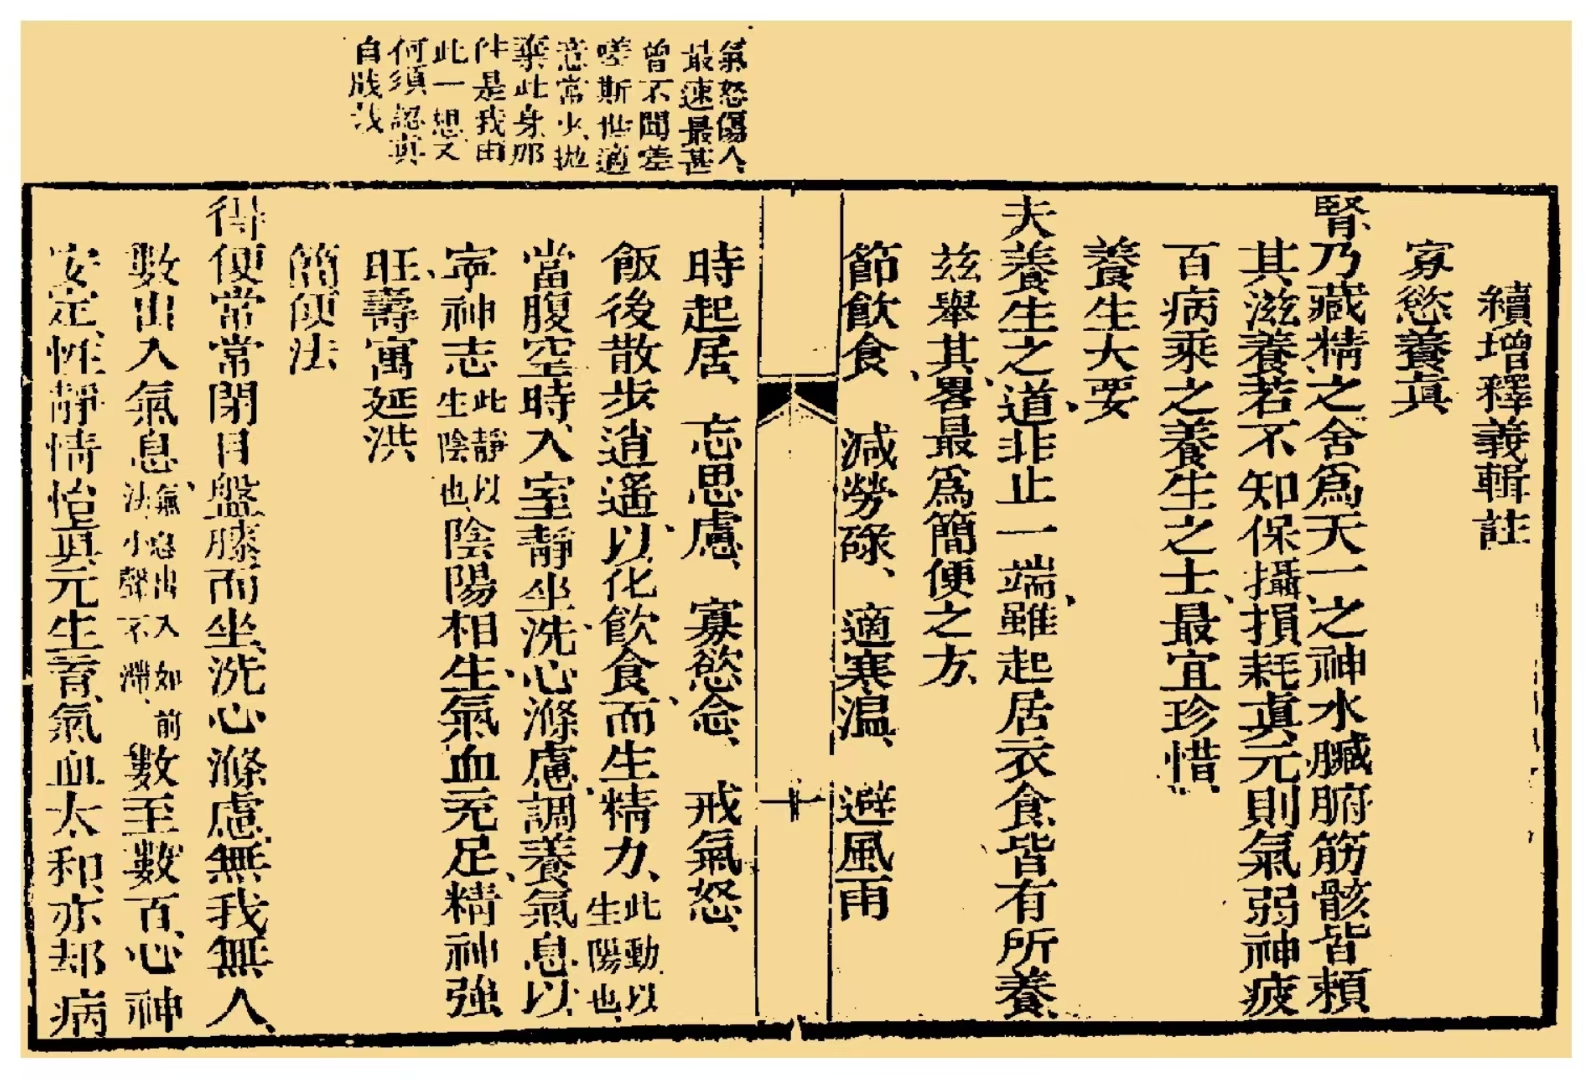 氣怒傷人
最速最甚
曾不聞䓁
嗟斯世適
意常少拋
棄此身那
件是我由
此一想又
何須認眞
自戕哉
續增釋義輯註
寡慾養眞
腎乃藏精之舍爲天一之神水臟腑筋骸皆賴
其滋養若不知保攝損耗眞元則氣弱神疲
百病乘之養生之士最宜珍惜
養生大要
夫養生之道非止一端雖起居衣食皆有所養
兹舉其畧最爲簡便之方
節飲食 減勞碌 適寒温 避風雨
時起居 忘思慮 寡慾念 戒氣怒
飯後散步逍遙以化飲食而生精力此動以生陽也
當腹空時入室靜坐洗心滌慮調養氣息以
寧神志此靜以生陰也陰陽相生氣血充足精神強
旺壽寓延洪
簡便法
得便常常閉目盤膝而坐洗心滌慮無我無人
數出入氣息法無息出入如前小聲不滯數至數百心神
安定性靜情怡眞元生育氣血太和亦却病